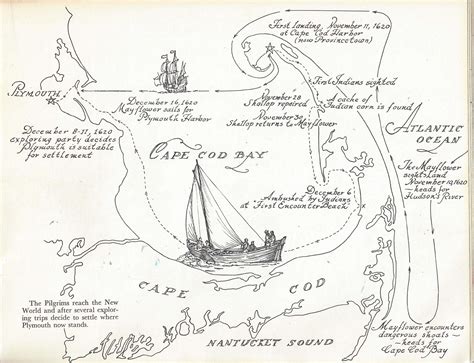 First landing, November 11, 1620
at Cape Cod Harbor
(now Provincetown)
First Indians sighted
cache of
Indian corn is found
November 28
Shallop repaired
November 30
Shallop returns to Mayflower
PLYMOUTH
December 16, 1620
Mayflower sails for
Plymouth Harbor
December 8-11, 1620
exploring party decides
Plymouth is suitable
for settlement
ATLANTIC
OCEAN
CAPE COD BAY
The Mayflower
sights land
November 10, 1620
– heads for
Hudson's River
December 6
Ambushed by Indians
at First Encounter Beach
CAPE COD
The Pilgrims reach the New
World and after several explor-
ing trips decide to settle where
Plymouth now stands.
NANTUCKET SOUND
Mayflower encounters
dangerous shoals –
heads for
Cape Cod Bay